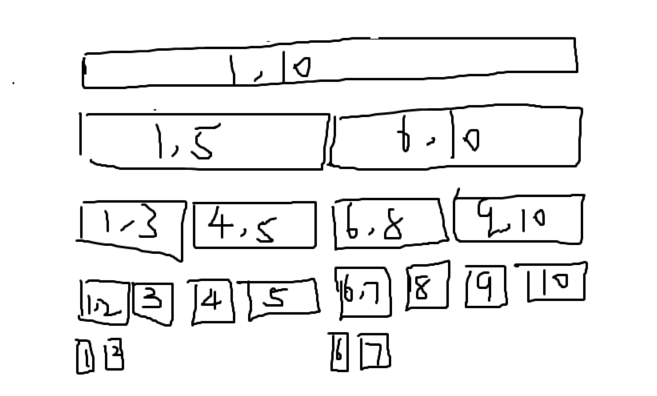 1,10
1,5 6,10
1,3 4,5 6,8 9,10
1,2 3 4 5 6,7 8 9 10
1 2 6 7